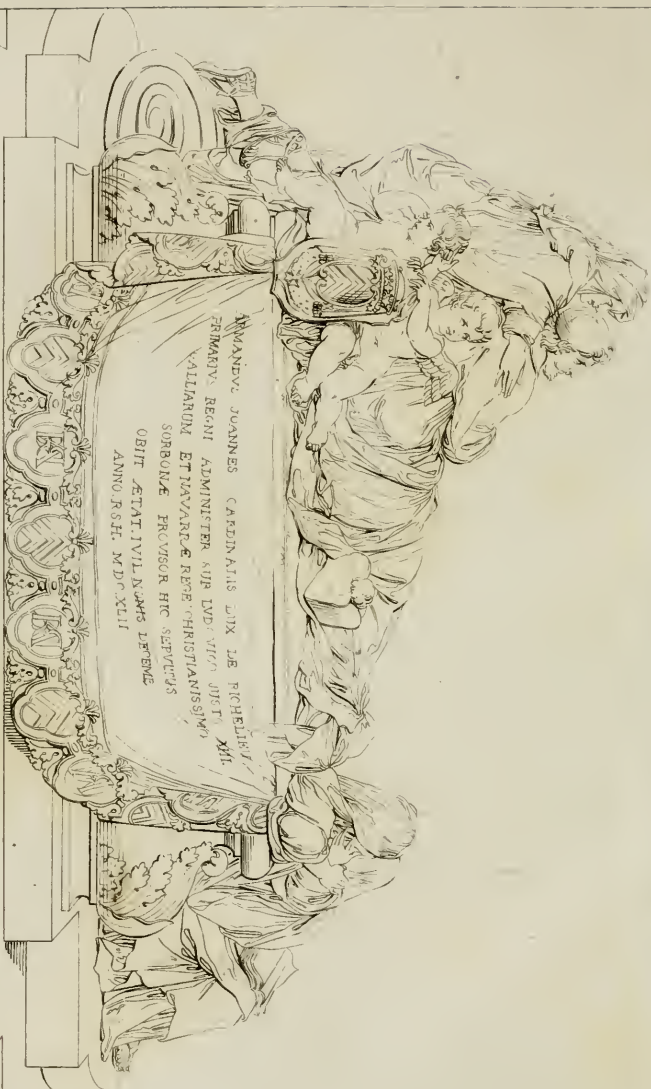 ARMANDVS JOANNES CARDINALIS DUX DE RICHELIEU.
PRIMARIVS REGNI ADMINISTER SUB LVDOVICO JUSTO XIII.
GALLIARUM ET NAVARRÆ REGE CHRISTIANISSIMO
SORBONÆ PROVISOR HIC SEPVLTUS
OBIIT ÆTAT. DECEMB
ANNO.R.S.H. MDC.XLII